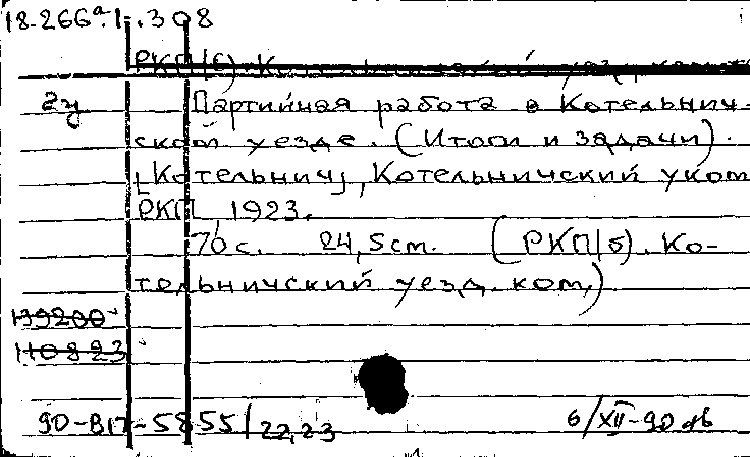 18-266а.1-.308
РКП/б). Котельничский уезд. комит.
2у Партийная работа в Котельнич-
ском уезде. (Итоги и задачи).
[Котельнич], Котельничский уком
РКП, 1923.
70 с. 24,5 см. (РКП/б). Ко-
тельничский уезд. ком.).
139200
110823
90-В17-5855/22,23
6/XII-90